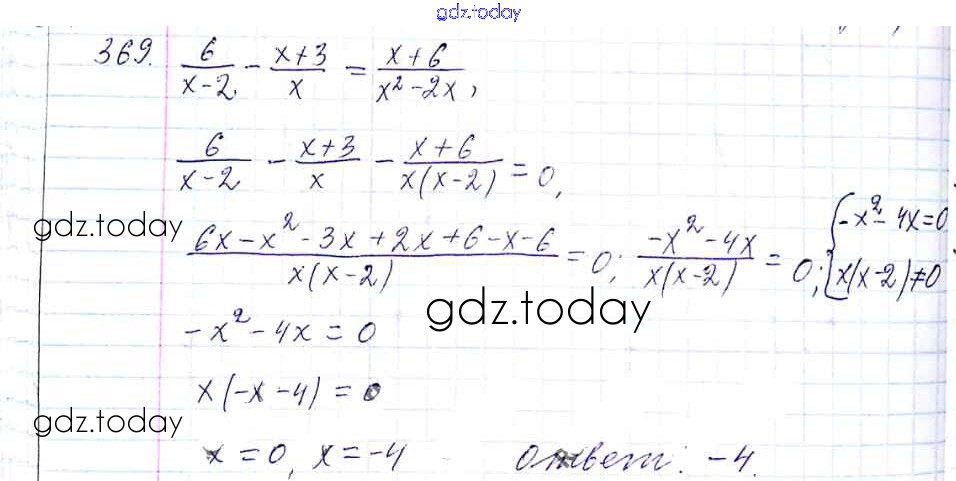 gdz.today
369. 6/(x-2) - (x+3)/x = (x+6)/(x²-2x),
6/(x-2) - (x+3)/x - (x+6)/(x(x-2)) = 0,
gdz.today
(6x-x²-3x+2x+6-x-6)/(x(x-2)) = 0; (-x²-4x)/(x(x-2)) = 0; { -x²-4x=0
x(x-2)≠0
gdz.today
-x²-4x=0
x(-x-4)=0
gdz.today
x=0, x=-4 Ответ: -4.